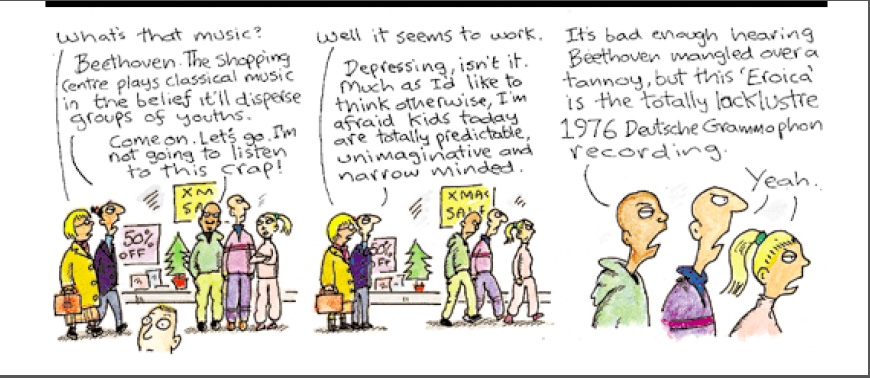 What's that music?
Beethoven. The shopping
centre plays classical music
in the belief it'll disperse
groups of youths.
Come on. Let's go. I'm
not going to listen
to this crap!
XM
SA
50%
OFF
Well it seems to work.
Depressing, isn't it.
Much as I'd like to
think otherwise, I'm
afraid kids today
are totally predictable,
unimaginative and
narrow minded.
XMAS
SALE
50%
OFF
It's bad enough hearing
Beethoven mangled over a
tannoy, but this 'Eroica'
is the totally lacklustre
1976 Deutsche Grammophon
recording.
Yeah.